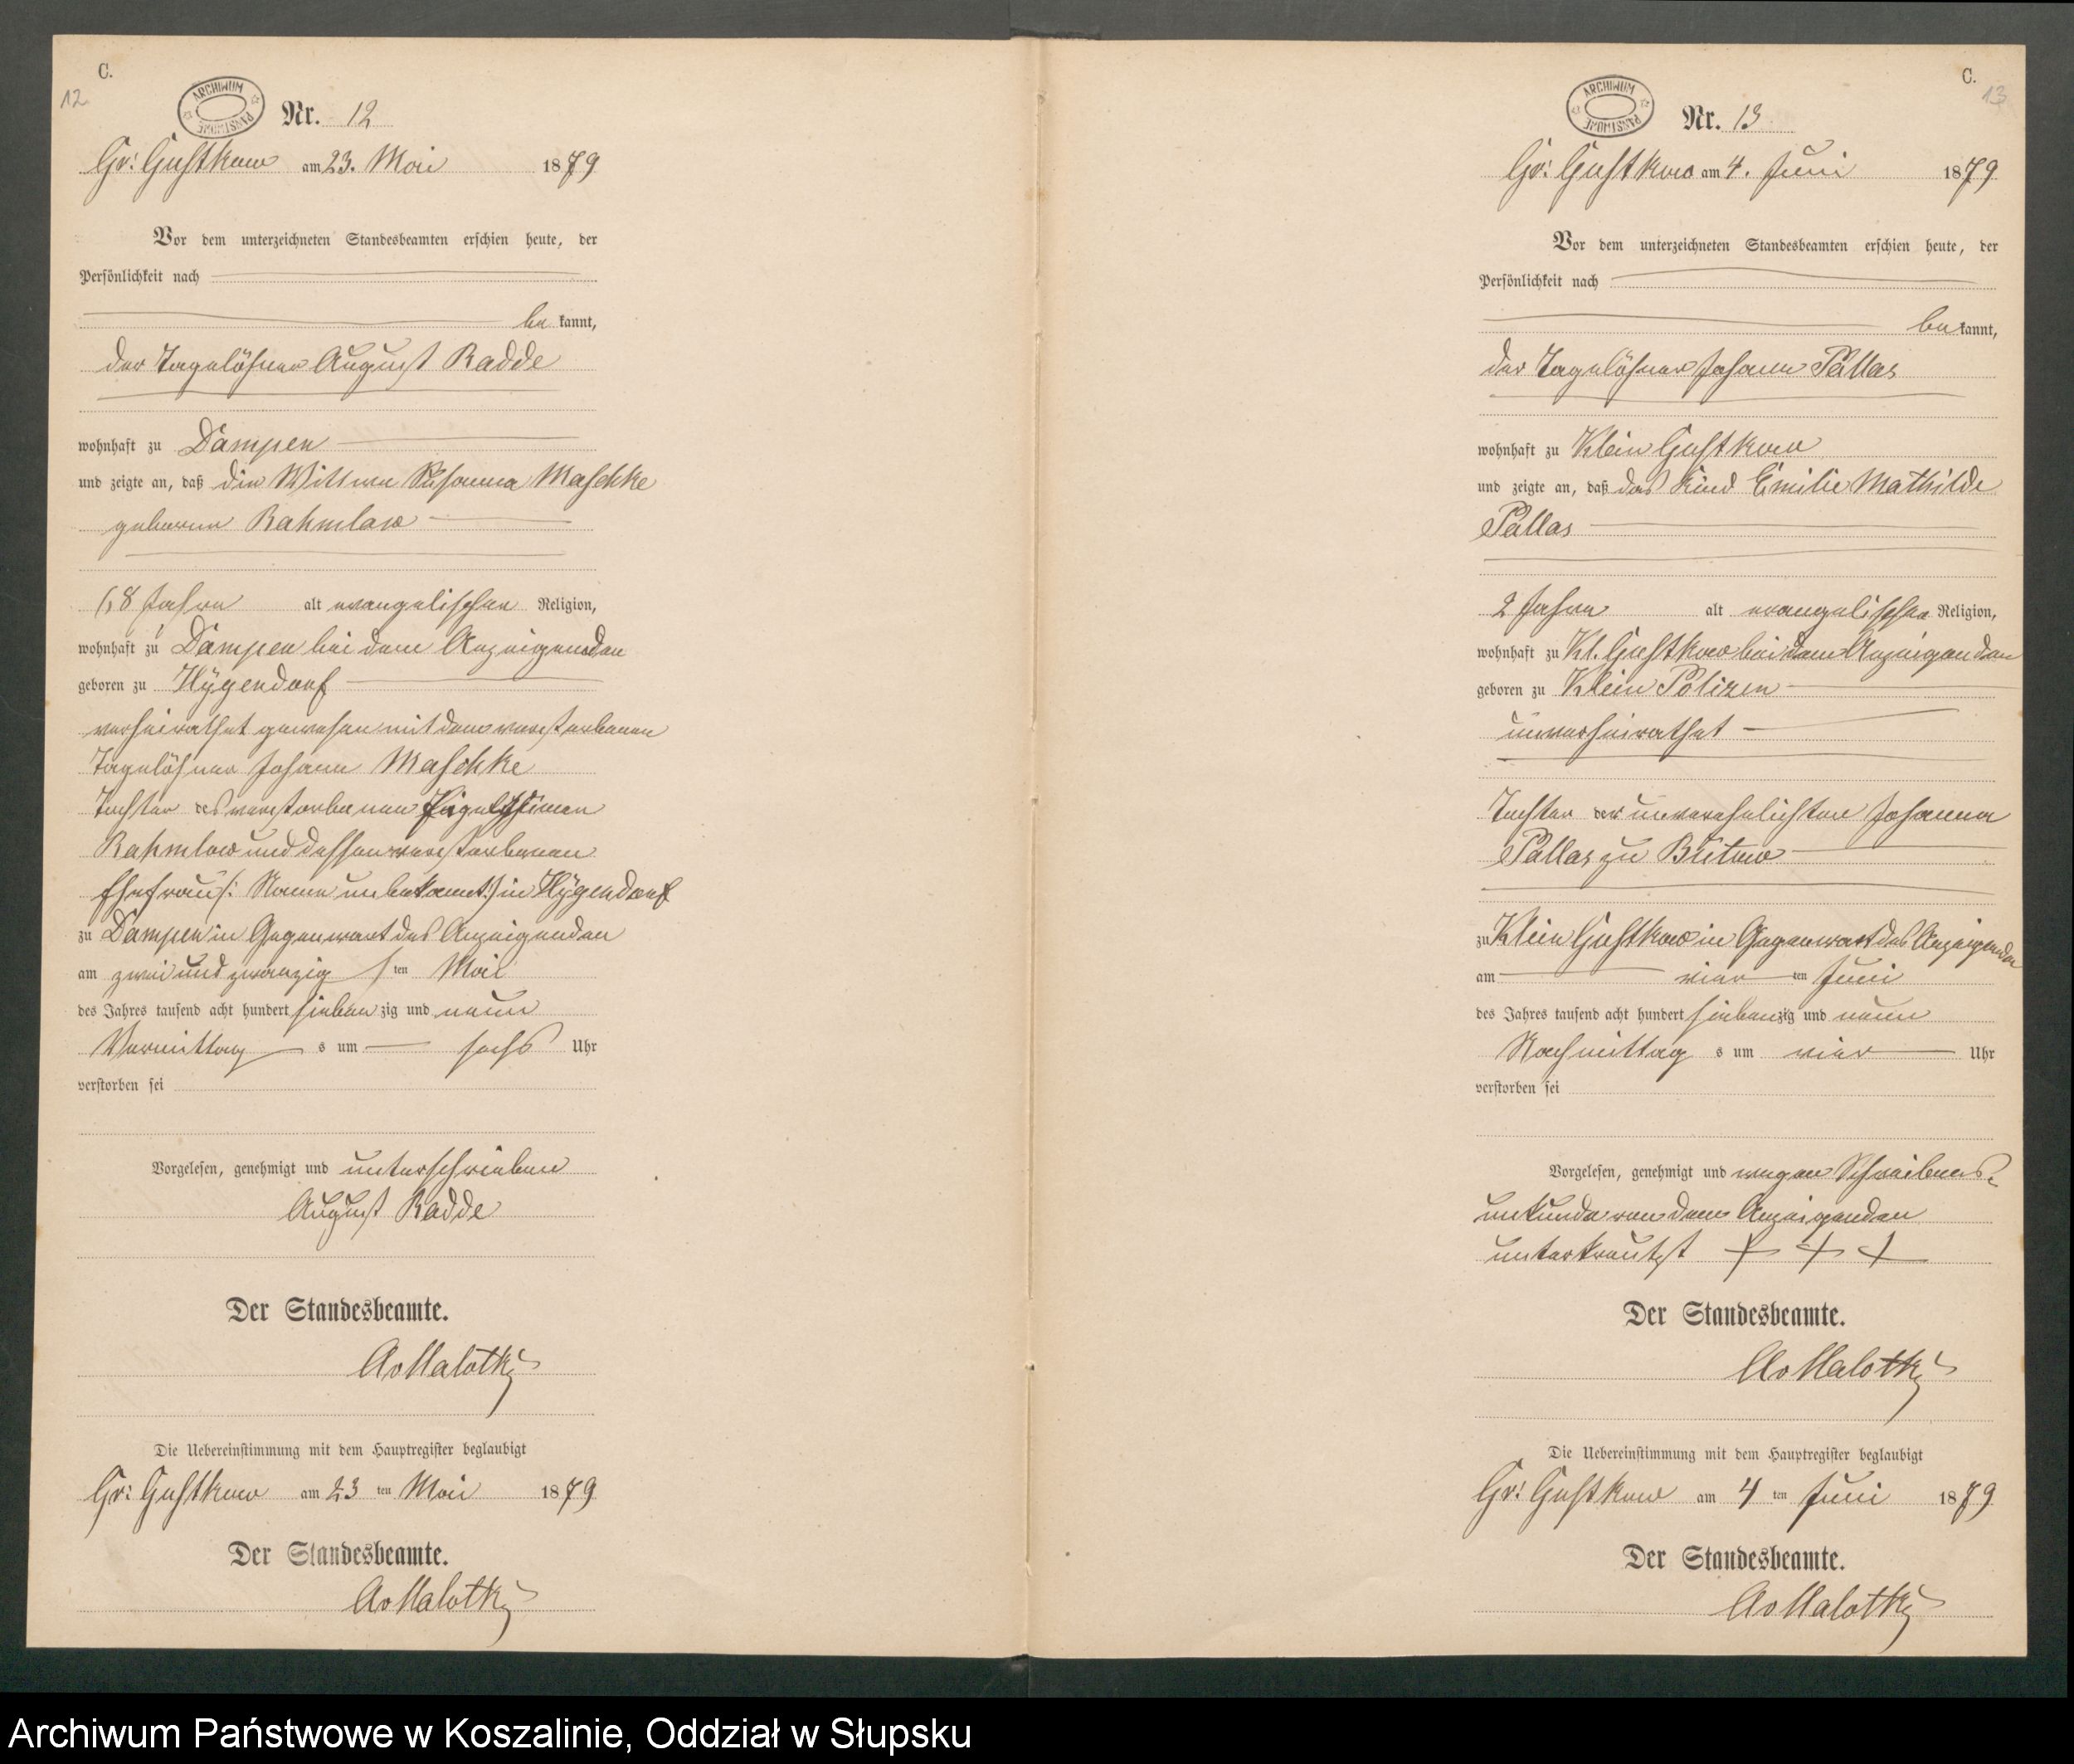 C.
12
ARCHIWUM PAŃSTWOWE
Nr. 12
Gr: Gustkow am 23. Mai 1879
Vor dem unterzeichneten Standesbeamten erschien heute, der
Persönlichkeit nach
be kannt,
der Tagelöhner August Radde
wohnhaft zu Dampen
und zeigte an, daß die Wittwe Susanna Maschke
geborene Rahmlow
68 Jahre alt evangelischer Religion,
wohnhaft zu Dampen bei dem Anzeigenden
geboren zu Hygendorf
verheirathet gewesen mit dem verstorbenen
Tagelöhner Johann Maschke
Tochter des verstorbenen
Rahmlow und dessen verstorbenen
Ehefrau /: Name unbekannt :/ in Hygendorf
zu Dampen in Gegenwart des Anzeigenden
am zwei und zwanzig ten Mai
des Jahres tausend acht hundert sieben zig und neun
Vormittag s um sechs Uhr
verstorben sei
Vorgelesen, genehmigt und unterschrieben
August Radde
Der Standesbeamte.
AvMalotky
Die Uebereinstimmung mit dem Hauptregister beglaubigt
Gr: Gustkow am 23 ten Mai 1879
Der Standesbeamte.
AvMalotky
C.
13
ARCHIWUM PAŃSTWOWE
Nr. 13
Gr: Gustkow am 4. Juni 1879
Vor dem unterzeichneten Standesbeamten erschien heute, der
Persönlichkeit nach
be kannt,
der Tagelöhner Johann Pallas
wohnhaft zu Klein Gustkow
und zeigte an, daß das Kind Emilie Mathilde
Pallas
2 Jahre alt evangelischer Religion,
wohnhaft zu Kl. Gustkow bei dem Anzeigenden
geboren zu Klein Polizen
unverheirathet
Tochter der unverehelichten Johanna
Pallas zu Bütow
zu Klein Gustkow in Gegenwart des Anzeigenden
am vier ten Juni
des Jahres tausend acht hundert siebenzig und neun
Nachmittag s um vier Uhr
verstorben sei
Vorgelesen, genehmigt und wegen Schreibens-
unkunde von dem Anzeigenden
unterkreutzt + + +
Der Standesbeamte.
AvMalotky
Die Uebereinstimmung mit dem Hauptregister beglaubigt
Gr: Gustkow am 4 ten Juni 1879
Der Standesbeamte.
AvMalotky
Archiwum Państwowe w Koszalinie, Oddział w Słupsku